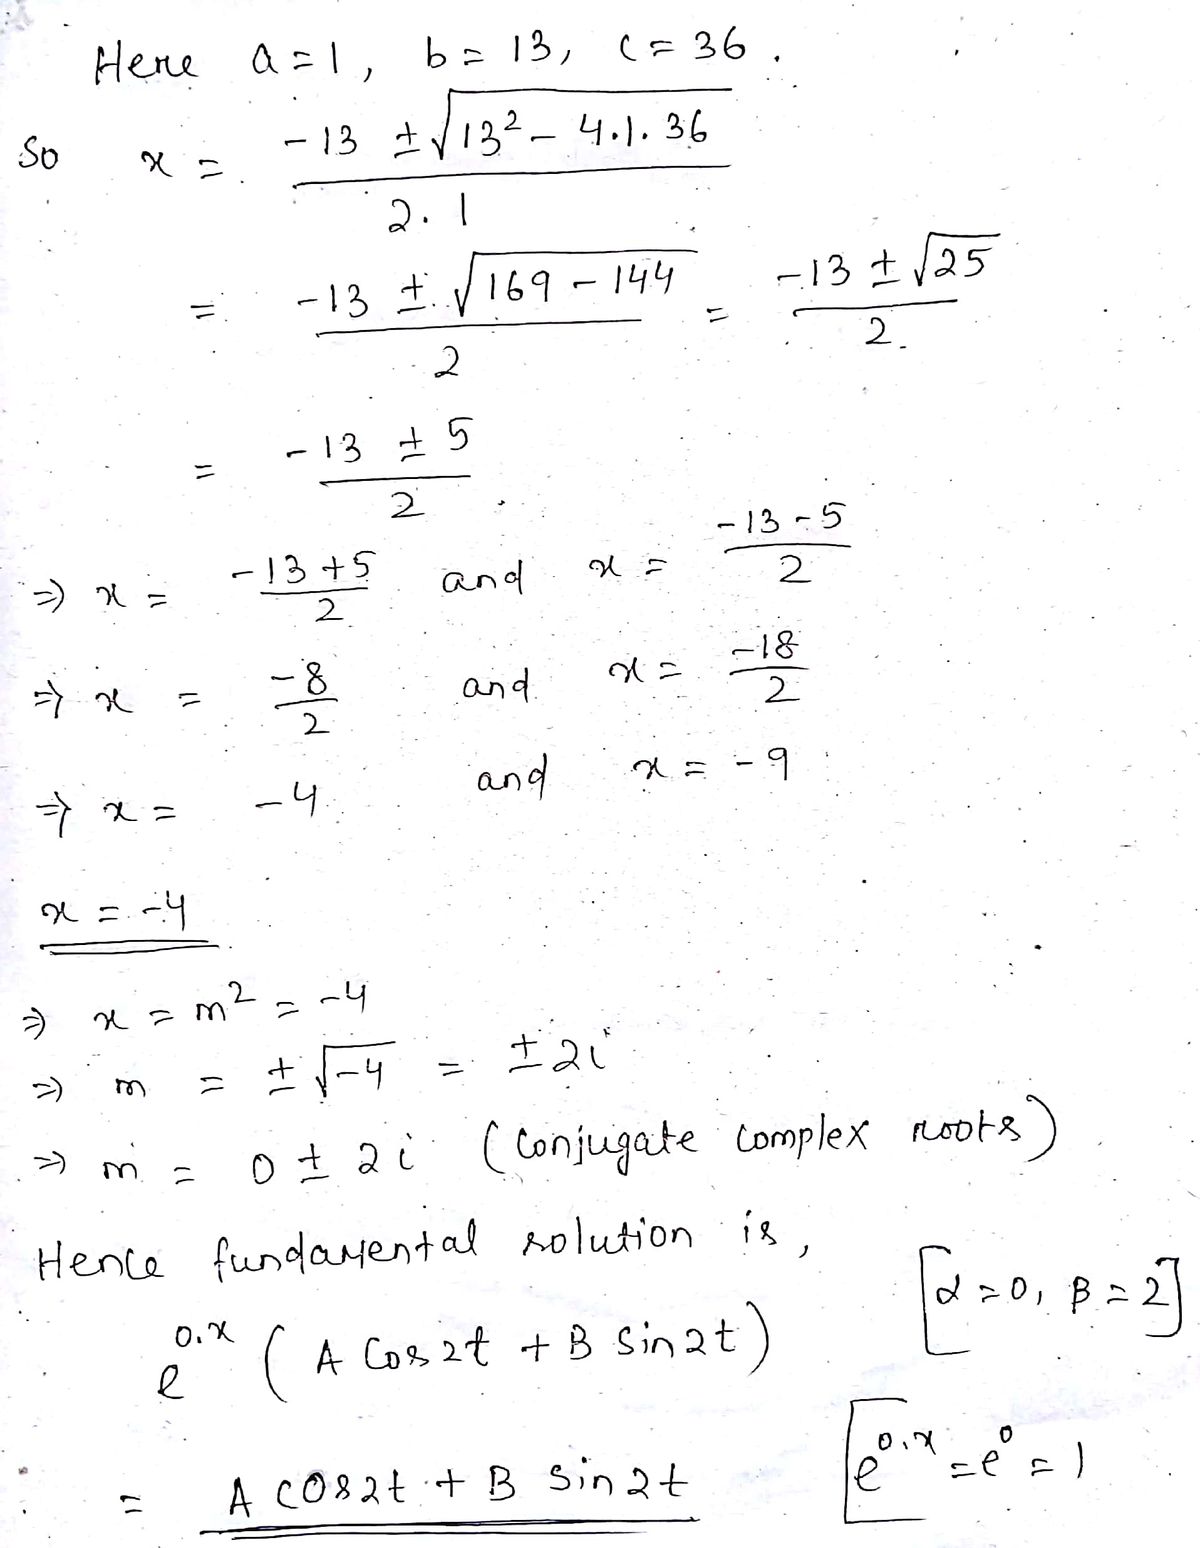 Here a = 1, b = 13, c = 36.
So x = (-13 ± √(13² - 4.1.36)) / 2.1
= (-13 ± √(169 - 144)) / 2 = (-13 ± √25) / 2.
= (-13 ± 5) / 2
⇒ x = (-13 + 5) / 2 and x = (-13 - 5) / 2
⇒ x = -8/2 and x = -18/2
⇒ x = -4 and x = -9
x = -4
⇒ x = m² = -4
⇒ m = ±√-4 = ±2i
⇒ m = 0 ± 2i (Conjugate Complex roots)
Hence fundamental solution is,
[α = 0, β = 2]
e^0.x (A Cos 2t + B Sin 2t)
[e^0.x = e^0 = 1
= A COS 2t + B Sin 2t